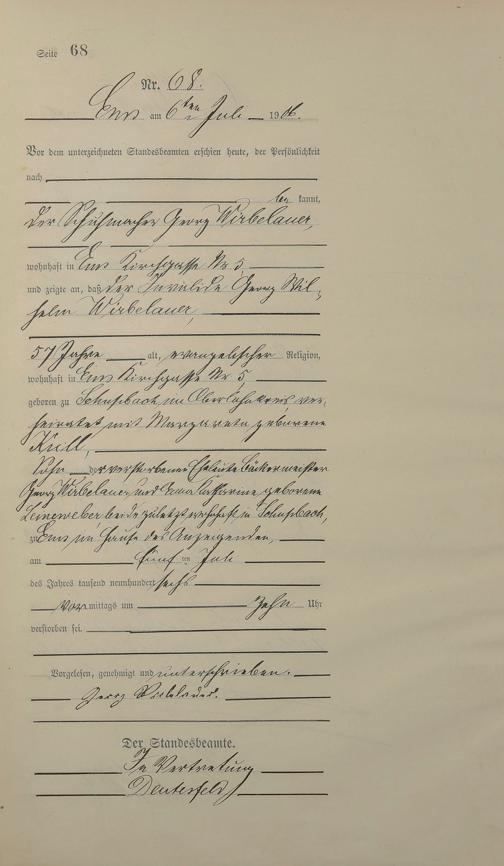 Seite 68
Nr. 68.
Ems am 6ten Juli 1906.
Vor dem unterzeichneten Standesbeamten erschien heute, der Persönlichkeit
nach
bekannt,
der Schuhmacher Georg Wirbelauer,
wohnhaft in Ems Kirchgasse Nr. 5
und zeigte an, daß der Invalide Georg Wil-
helm Wirbelauer,
57 Jahre alt, evangelischer Religion,
wohnhaft in Ems Kirchgasse Nr. 5,
geboren zu im Oberlahnkreis, ver-
heiratet mit Margareta geborene
Krill,
Sohn der verstorbenen Eheleute Bäckermeister
Georg Wirbelauer und Katharine geborene
Leineweber beide zuletzt wohnhaft in
zu Ems im Hause des Anzeigenden,
am fünften Juli
des Jahres tausend neunhundert sechs
Vormittags um zehn Uhr
verstorben sei.
Vorgelesen, genehmigt und unterschrieben.
Georg Wirbelauer.
Der Standesbeamte.
In Vertretung